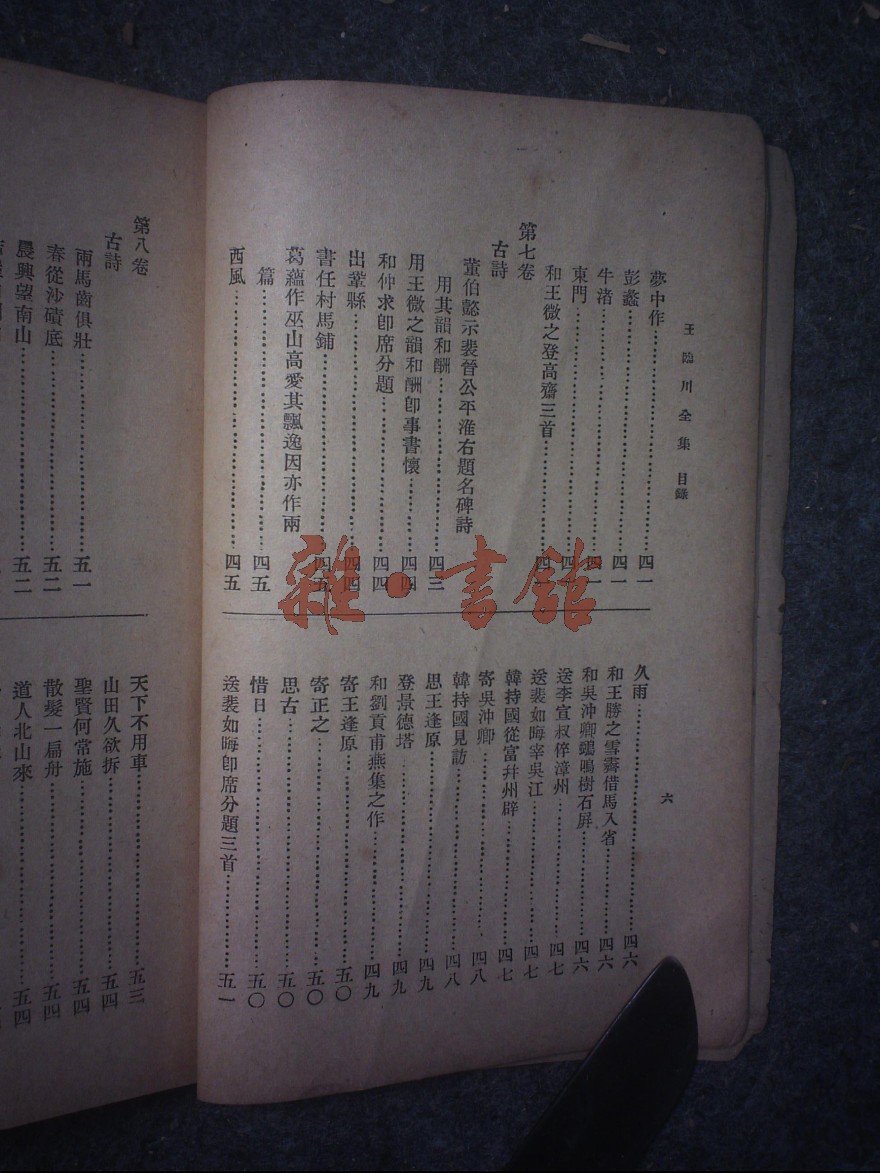 王臨川全集 目錄
六
夢中作……四一
彭蠡……四一
牛渚……四一
東門……四一
和王微之登高齋三首……四二
第七卷
古詩
董伯懿示裴晉公平淮右題名碑詩
用其韻和酬……四三
用王微之韻和酬卽事書懷……四四
和仲求卽席分題……四四
出鞏縣……四四
書任村馬鋪……四五
葛蘊作巫山高愛其飄逸因亦作兩
篇……四五
西風……四五
久雨……四六
和王勝之雪霽借馬入省……四六
和吳沖卿鴉鳴樹石屏……四六
送李宣叔倅漳州……四七
送裴如晦宰吳江……四七
韓持國從富幷州辟……四七
寄吳沖卿……四八
韓持國見訪……四八
思王逢原……四九
登景德塔……四九
和劉貢甫燕集之作……四九
寄王逢原……五〇
寄正之……五〇
思古……五〇
惜日……五〇
送裴如晦卽席分題三首……五一
第八卷
古詩
兩馬齒俱壯……五一
春從沙磧底……五二
晨興望南山……五二
天下不用車……五三
山田久欲拆……五四
聖賢何常施……五四
散髮一扁舟……五四
道人北山來……五四
雜·書館